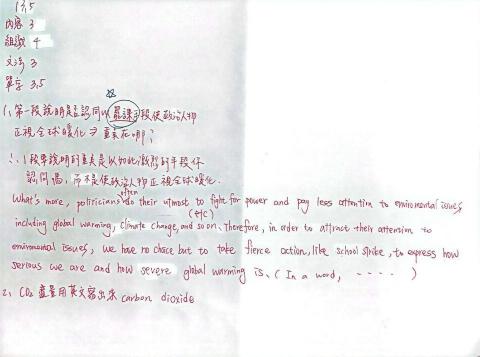 13.5
內容 3
組織 4
文法 3
單字 3.5
1. 第一段說明是否認同以罷課手段使政治人物
正視全球暖化 重點在哪?
∴ 1段要說明的重點是以如此激烈的手段你
認同嗎, 而不是使政治人物正視全球暖化.
What's more, politicians often do their utmost to fight for power and pay less attention to enviromental issues,
including global warming, climate change, and so on. (etc) Therefore, in order to attract their attension to
enviromental issues, we have no choice but to take fierce action, like school strike, to express how
serious we are and how severe global warming is. (In a word, ‧‧‧‧ )
2. CO₂ 盡量用英文寫出來 carbon dioxide